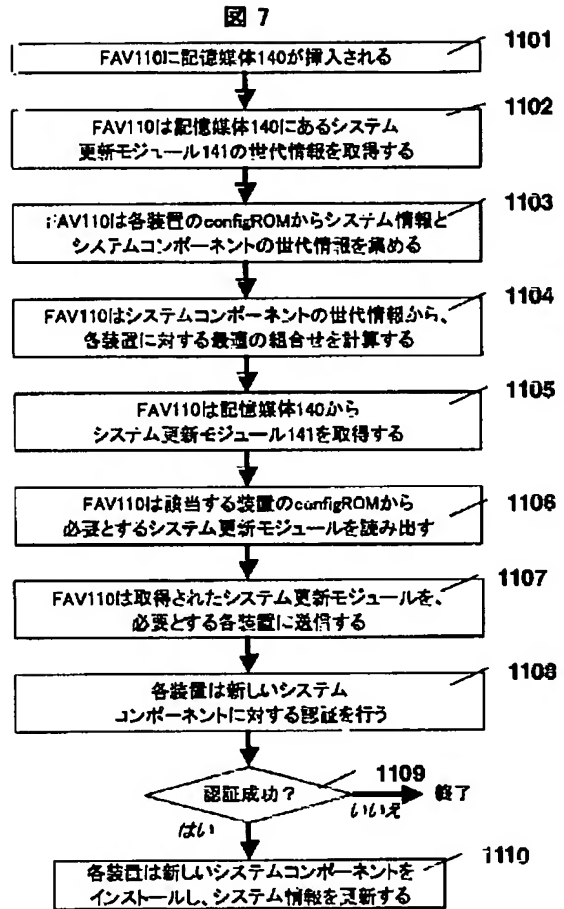 図 7
1101
FAV110に記憶媒体140が挿入される
1102
FAV110は記憶媒体140にあるシステム
更新モジュール141の世代情報を取得する
1103
FAV110は各装置のconfigROMからシステム情報と
システムコンポーネントの世代情報を集める
1104
FAV110はシステムコンポーネントの世代情報から、
各装置に対する最適の組合せを計算する
1105
FAV110は記憶媒体140から
システム更新モジュール141を取得する
1106
FAV110は該当する装置のconfigROMから
必要とするシステム更新モジュールを読み出す
1107
FAV110は取得されたシステム更新モジュールを、
必要とする各装置に送信する
1108
各装置は新しいシステム
コンポーネントに対する認証を行う
1109
認証成功?
終了
いいえ
はい
1110
各装置は新しいシステムコンポーネントを
インストールし、システム情報を更新する